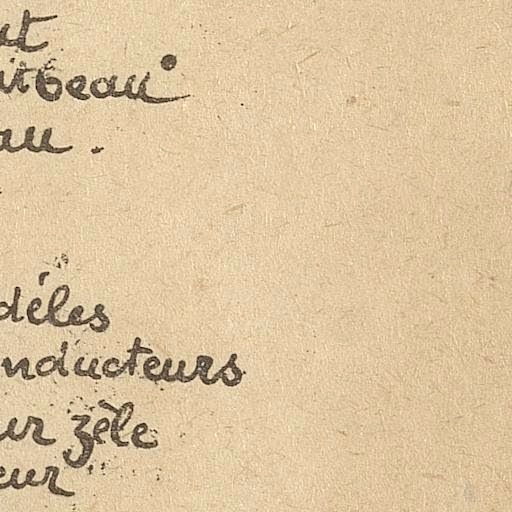 ut
itbeau
au.
dèles
nducteurs
ur zèle
eur